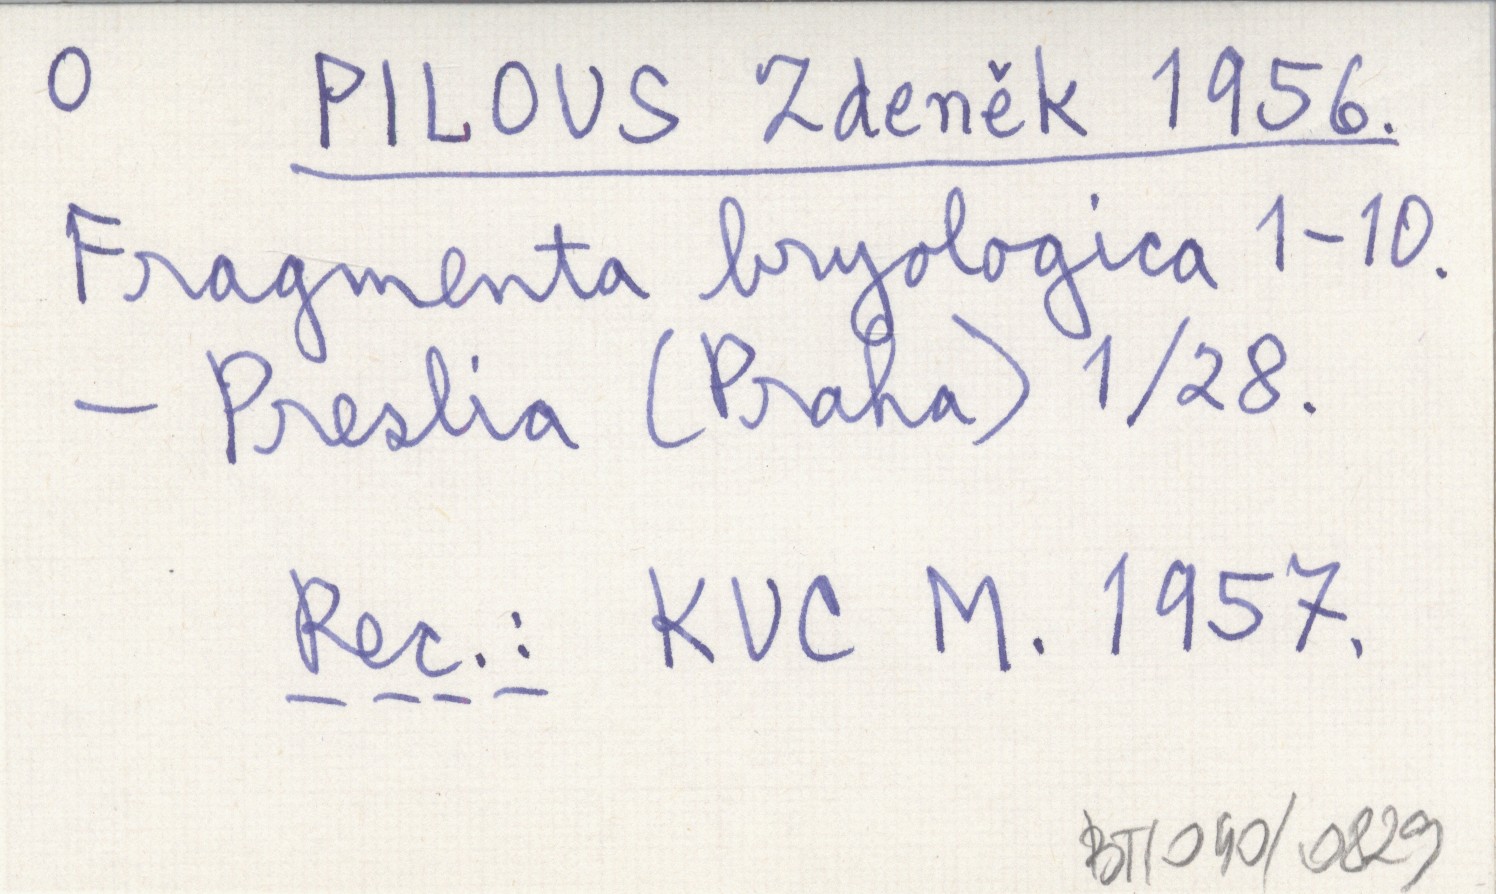 O PILOUS Zdeněk 1956.
Fragmenta bryologica 1-10.
— Preslia (Praha) 1/28.
Rec.: KUC M. 1957.
BT/040/0829